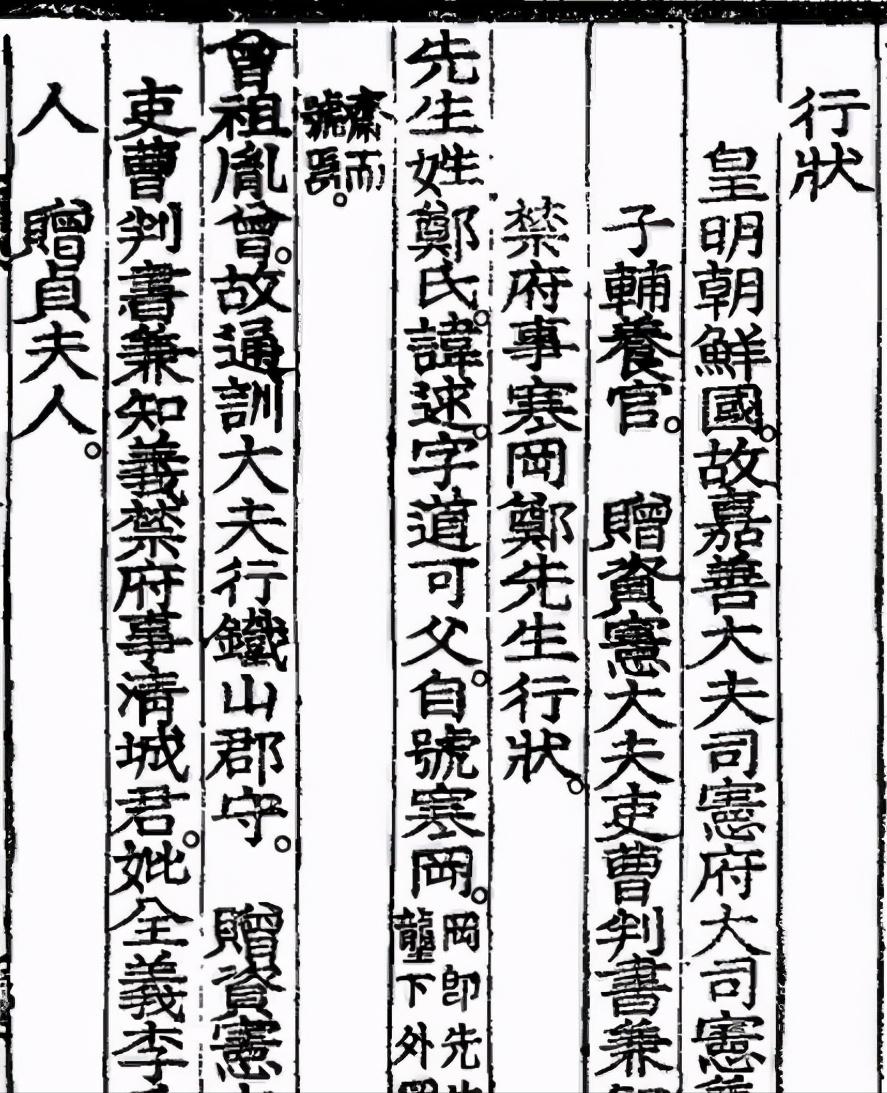 行狀
皇明朝鮮國。故嘉善大夫司憲府大司憲兼
子輔養官。 贈資憲大夫吏曹判書兼
禁府事寒岡鄭先生行狀。
先生姓鄭氏。諱逑。字道可父。自號寒岡。
岡卽先
壟下外
齋而
號焉。
曾祖胤曾。故通訓大夫行鐵山郡守。 贈資憲
吏曹判書兼知義禁府事淸城君。妣全義李
人 贈貞夫人。